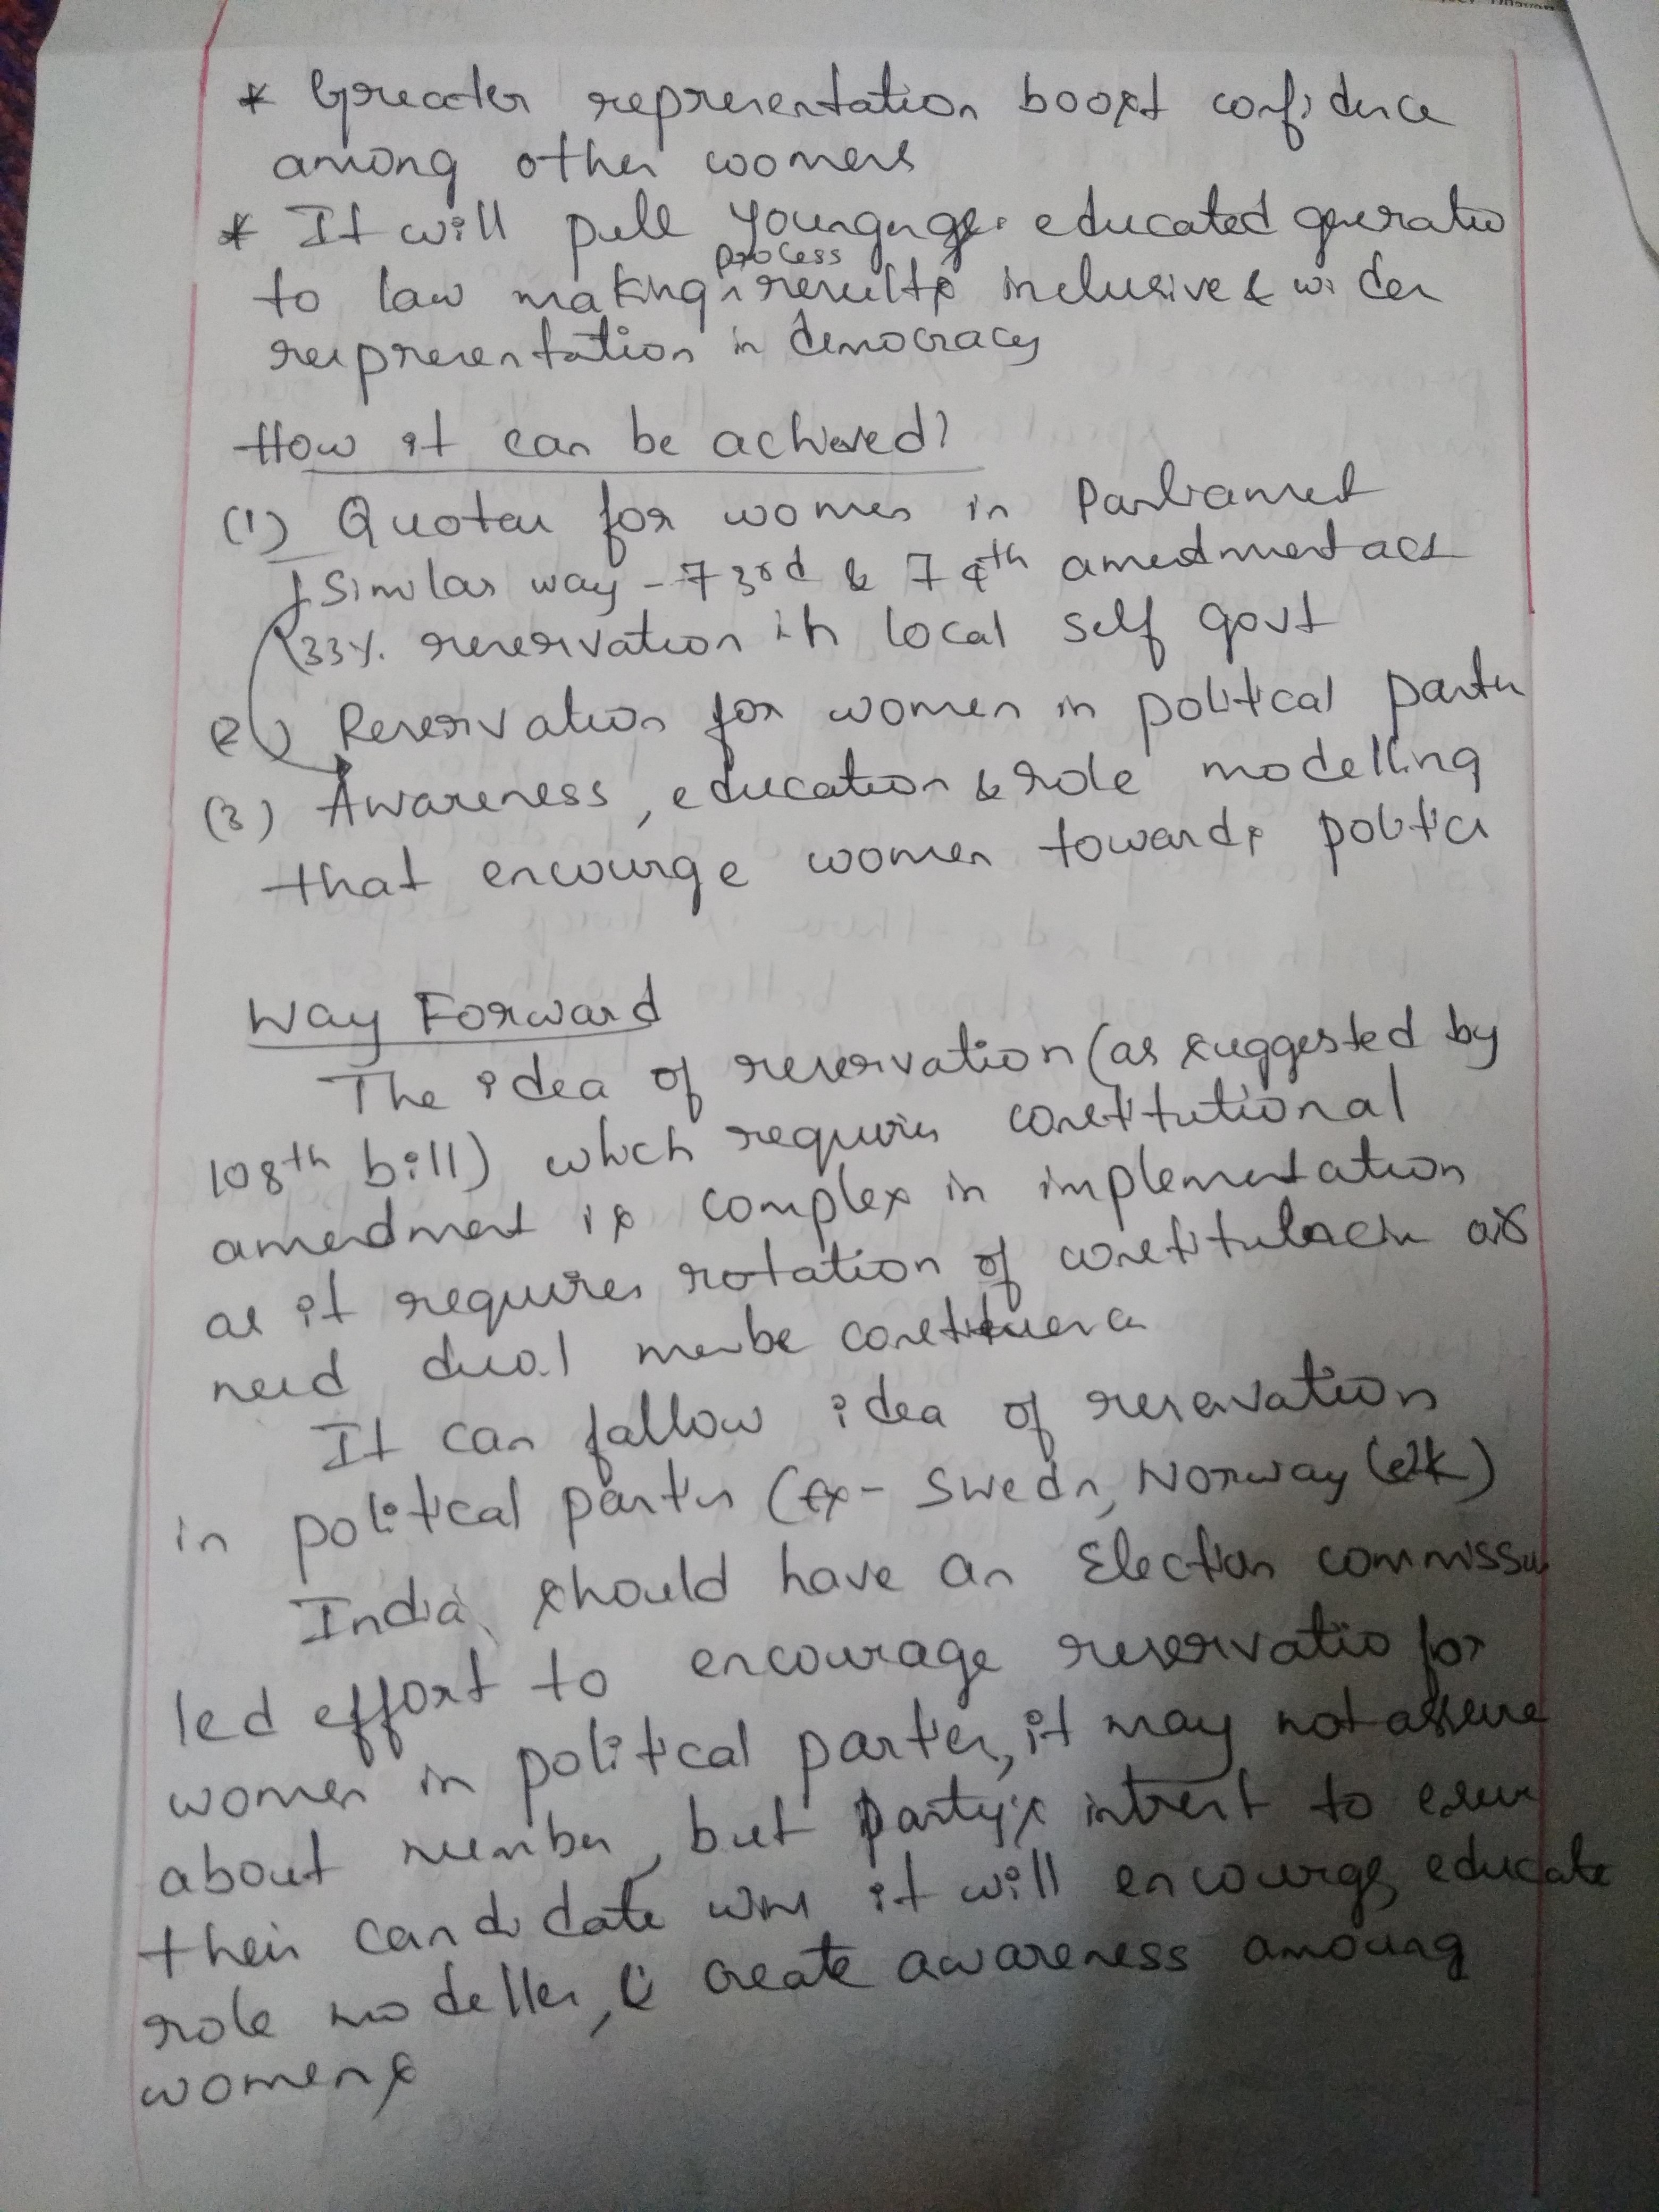 * Greater representation boost confidence
among other womens
* It will pull younger educated generatio
process
to law making results inclusive & wider
representation in democracy
How it can be achieved?
(1) Quotas for women in Parliament
Similar way - 73rd & 74th amedment act
33%. reservation in local self govt
(2) Reservation for women in politcal parties
(3) Awareness, education & role modelling
that encourge women towards politics
Way Forward
The idea of reservation (as suggested by
108th bill) which requires constitutional
amendment is complex in implementation
as it requires rotation of or
need dual constituency
It can follow idea of reservation
in political parties (Ex- Sweden, Norway etc)
India should have an Election commission
led effort to encourage reservatio for
women in politcal parties, it may not assure
about number, but party's intrest to
their candidate wins it will encourge, educate
role modeller, & create awareness amoung
womens